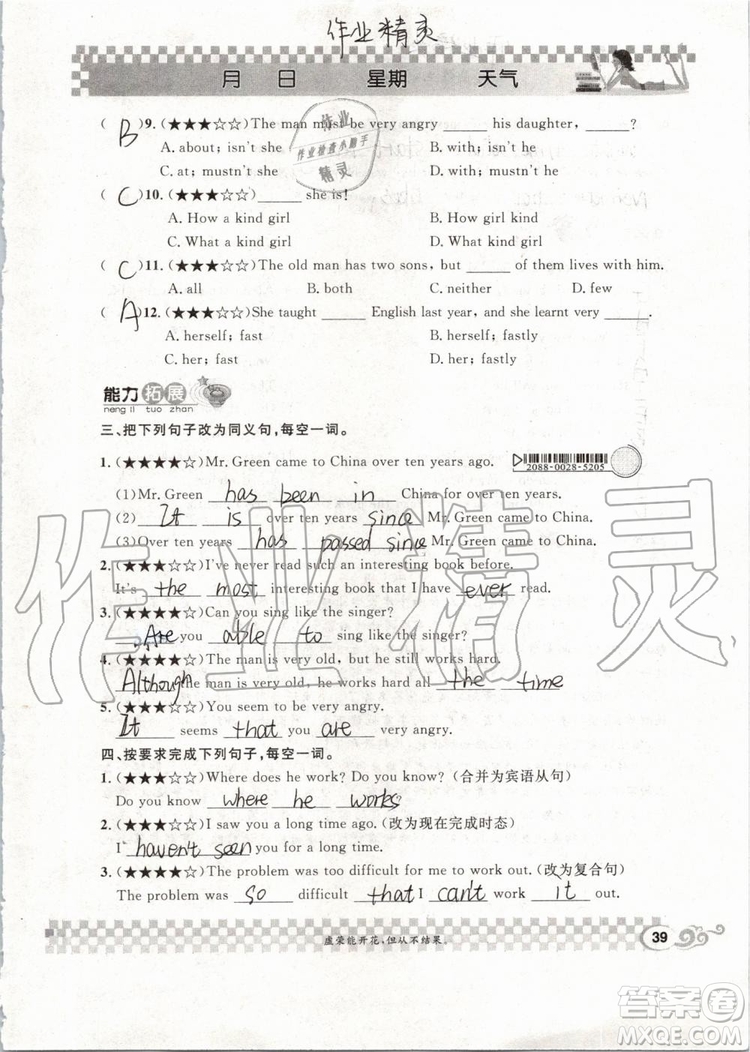 作业精灵
月 日 星期 天气
( B )9. (★★★☆☆)The man must be very angry _____ his daughter, _____?
A. about; isn't she B. with; isn't he
C. at; mustn't she D. with; mustn't he
( C )10. (★★★☆☆)_____ she is!
A. How a kind girl B. How girl kind
C. What a kind girl D. What kind girl
( C )11. (★★★☆☆)The old man has two sons, but _____ of them lives with him.
A. all B. both C. neither D. few
( A )12. (★★★☆☆)She taught _____ English last year, and she learnt very _____.
A. herself; fast B. herself; fastly
C. her; fast D. her; fastly
作业
作业检查小助手
精灵
能力拓展
neng li tuo zhan
三、把下列句子改为同义句,每空一词。
1. (★★★★☆)Mr. Green came to China over ten years ago.
2088-0028-5205
(1)Mr. Green has been in China for over ten years.
(2) It is over ten years since Mr. Green came to China.
(3)Over ten years has passed since Mr. Green came to China.
2. (★★★★☆)I've never read such an interesting book before.
It's the most interesting book that I have ever read.
3. (★★★★☆)Can you sing like the singer?
Are you able to sing like the singer?
4. (★★★★☆)The man is very old, but he still works hard.
Although the man is very old, he works hard all the time.
5. (★★★☆☆)You seem to be very angry.
It seems that you are very angry.
四、按要求完成下列句子,每空一词。
1. (★★★☆☆)Where does he work? Do you know? (合并为宾语从句)
Do you know where he works?
2. (★★★☆☆)I saw you a long time ago. (改为现在完成时态)
I haven't seen you for a long time.
3. (★★★★☆)The problem was too difficult for me to work out. (改为复合句)
The problem was so difficult that I can't work it out.
作业精灵
虚荣能开花,但从不结果。
39
答案圈
MXQE.COM